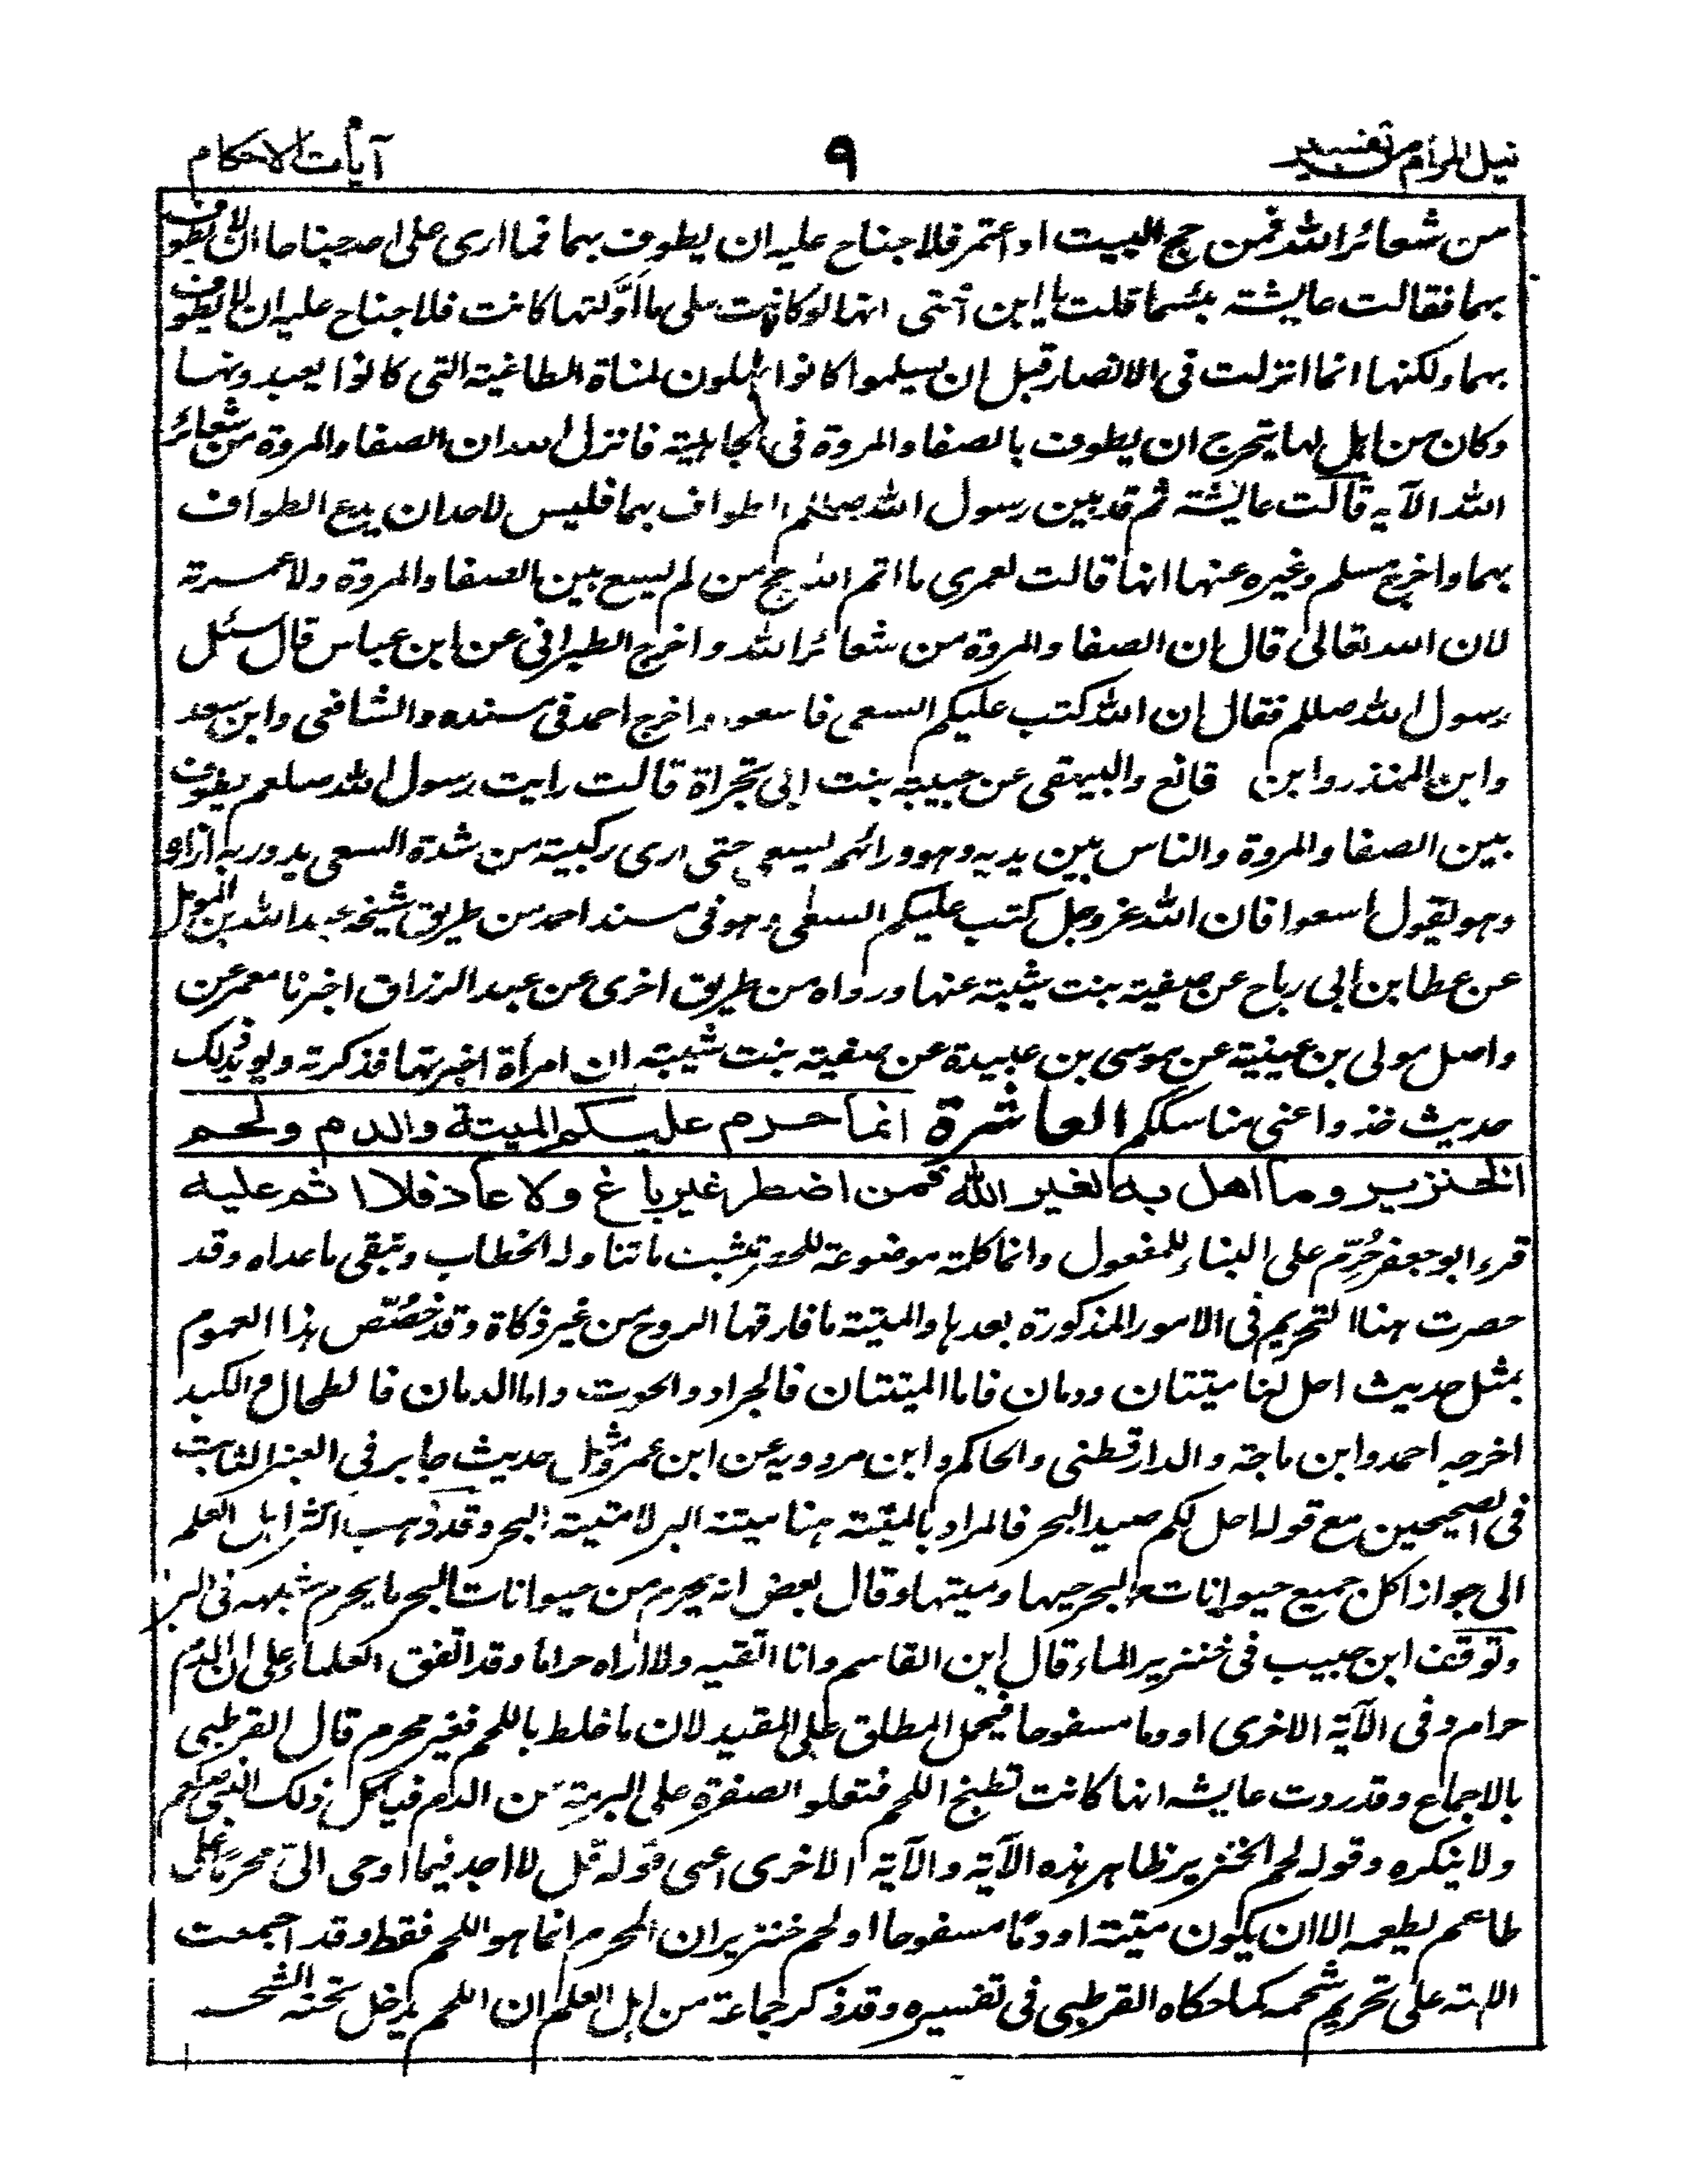 نيل المرام من تفسير ٩ آيات الاحكام
من شعائر الله فمن حج البيت او اعتمر فلا جناح عليه ان يطوف بهما فما ارى على احد جناحا ان لا يطوف
بهما فقالت عايشة بئسما قلت يا ابن أختي انها لو كانت على ما اوّلتها كانت فلا جناح عليه ان لا يطوف
بهما ولكنها انما انزلت فى الانصار قبل ان يسلموا كانوا يهلون لمناة الطاغية التى كانوا يعبدونها
وكان من اهل لها يتحرج ان يطوف بالصفا والمروة فى الجاهلية فانزل الله ان الصفا والمروة من شعائر
الله الآية قالت عايشة ثم قد بين رسول الله صلعم الطواف بهما فليس لاحد ان يدع الطواف
بهما واخرج مسلم وغيره عنها انها قالت لعمري ما اتم الله حج من لم يسع بين الصفا والمروة ولا عمرته
لان الله تعالى قال ان الصفا والمروة من شعائر الله واخرج الطبراني عن ابن عباس قال سئل
رسول الله صللم فقال ان الله كتب عليكم السعى فاسعوا واخرج احمد فى مسنده والشافعى وابن سعد
وابن المنذر وابن قانع والبيهقى عن حبيبة بنت ابى تجراة قالت رايت رسول الله صلعم يطوف
بين الصفا والمروة والناس بين يديه وهو ورائهم يسعى حتى ارى ركبيته من شدة السعى يدور به ازاره
وهو يقول اسعوا فان الله عز وجل كتب عليكم السعى وهو فى مسند احمد من طريق شيخه عبد الله بن المومل
عن عطا بن ابى رباح عن صفية بنت شيبة عنها ورواه من طريق اخرى عن عبد الرزاق اخبرنا معمر عن
واصل مولى بن عيينة عن موسى بن عبيدة عن صفية بنت شيبة ان امرأة اخبرتها فذكرته ويؤيد ذلك
حديث خذوا عنى مناسككم العاشرة انما حرم عليكم الميتة والدم ولحم
الخنزير وما اهل به لغير الله فمن اضطر غير باغ ولا عاد فلا اثم عليه
قرء ابو جعفر حُرِّم على البناء للمفعول وانما كلمة موضوعة للحصر تثبت ما تناوله الخطاب وتبقى ما عداه وقد
حصرت هنا التحريم فى الامور المذكورة بعدها والميتة ما فارقها الروح من غير ذكاة وقد خُصّص هذا العموم
بمثل حديث احل لنا ميتتان ودمان فاما الميتتان فالجراد والحوت واما الدمان فالطحال والكبد
اخرجه احمد وابن ماجة والدارقطنى والحاكم وابن مردويه عن ابن عمر ومثل حديث جابر فى العنبر الثابت
فى الصحيحين مع قوله احل لكم صيد البحر فالمراد بالميتة هنا ميتة البر لا ميتة البحر وقد ذهب اكثر اهل العلم
الى جواز اكل جميع حيوانات البحر حيها وميتها وقال بعض انه يحرم من حيوانات البحر ما يحرم شبهه فى البر
وتوقف ابن حبيب فى خنزير الماء قال ابن القاسم وانا اتقيه ولا اراه حراما وقد اتفق العلماء على ان الدم
حرام وفى الآية الاخرى او دما مسفوحا فيحمل المطلق على المقيد لان ما خلط باللحم فغير محرم قال القرطبى
بالاجماع وقد روت عايشة انها كانت تطبخ اللحم فتعلو الصفرة على البرمة من الدم فياكل ذلك النبى صلعم
ولا ينكره وقوله لحم الخنزير ظاهر هذه الآية والآية الاخرى اعنى قوله قل لا اجد فيما اوحى الىّ محرما على
طاعم يطعمه الا ان يكون ميتة او دمًا مسفوحا او لحم خنزير ان المحرم انما هو اللحم فقط وقد اجمعت
الامة على تحريم شحمه كما حكاه القرطبى فى تفسيره وقد ذكر جماعة من اهل العلم ان اللحم يدخل تحته الشحم